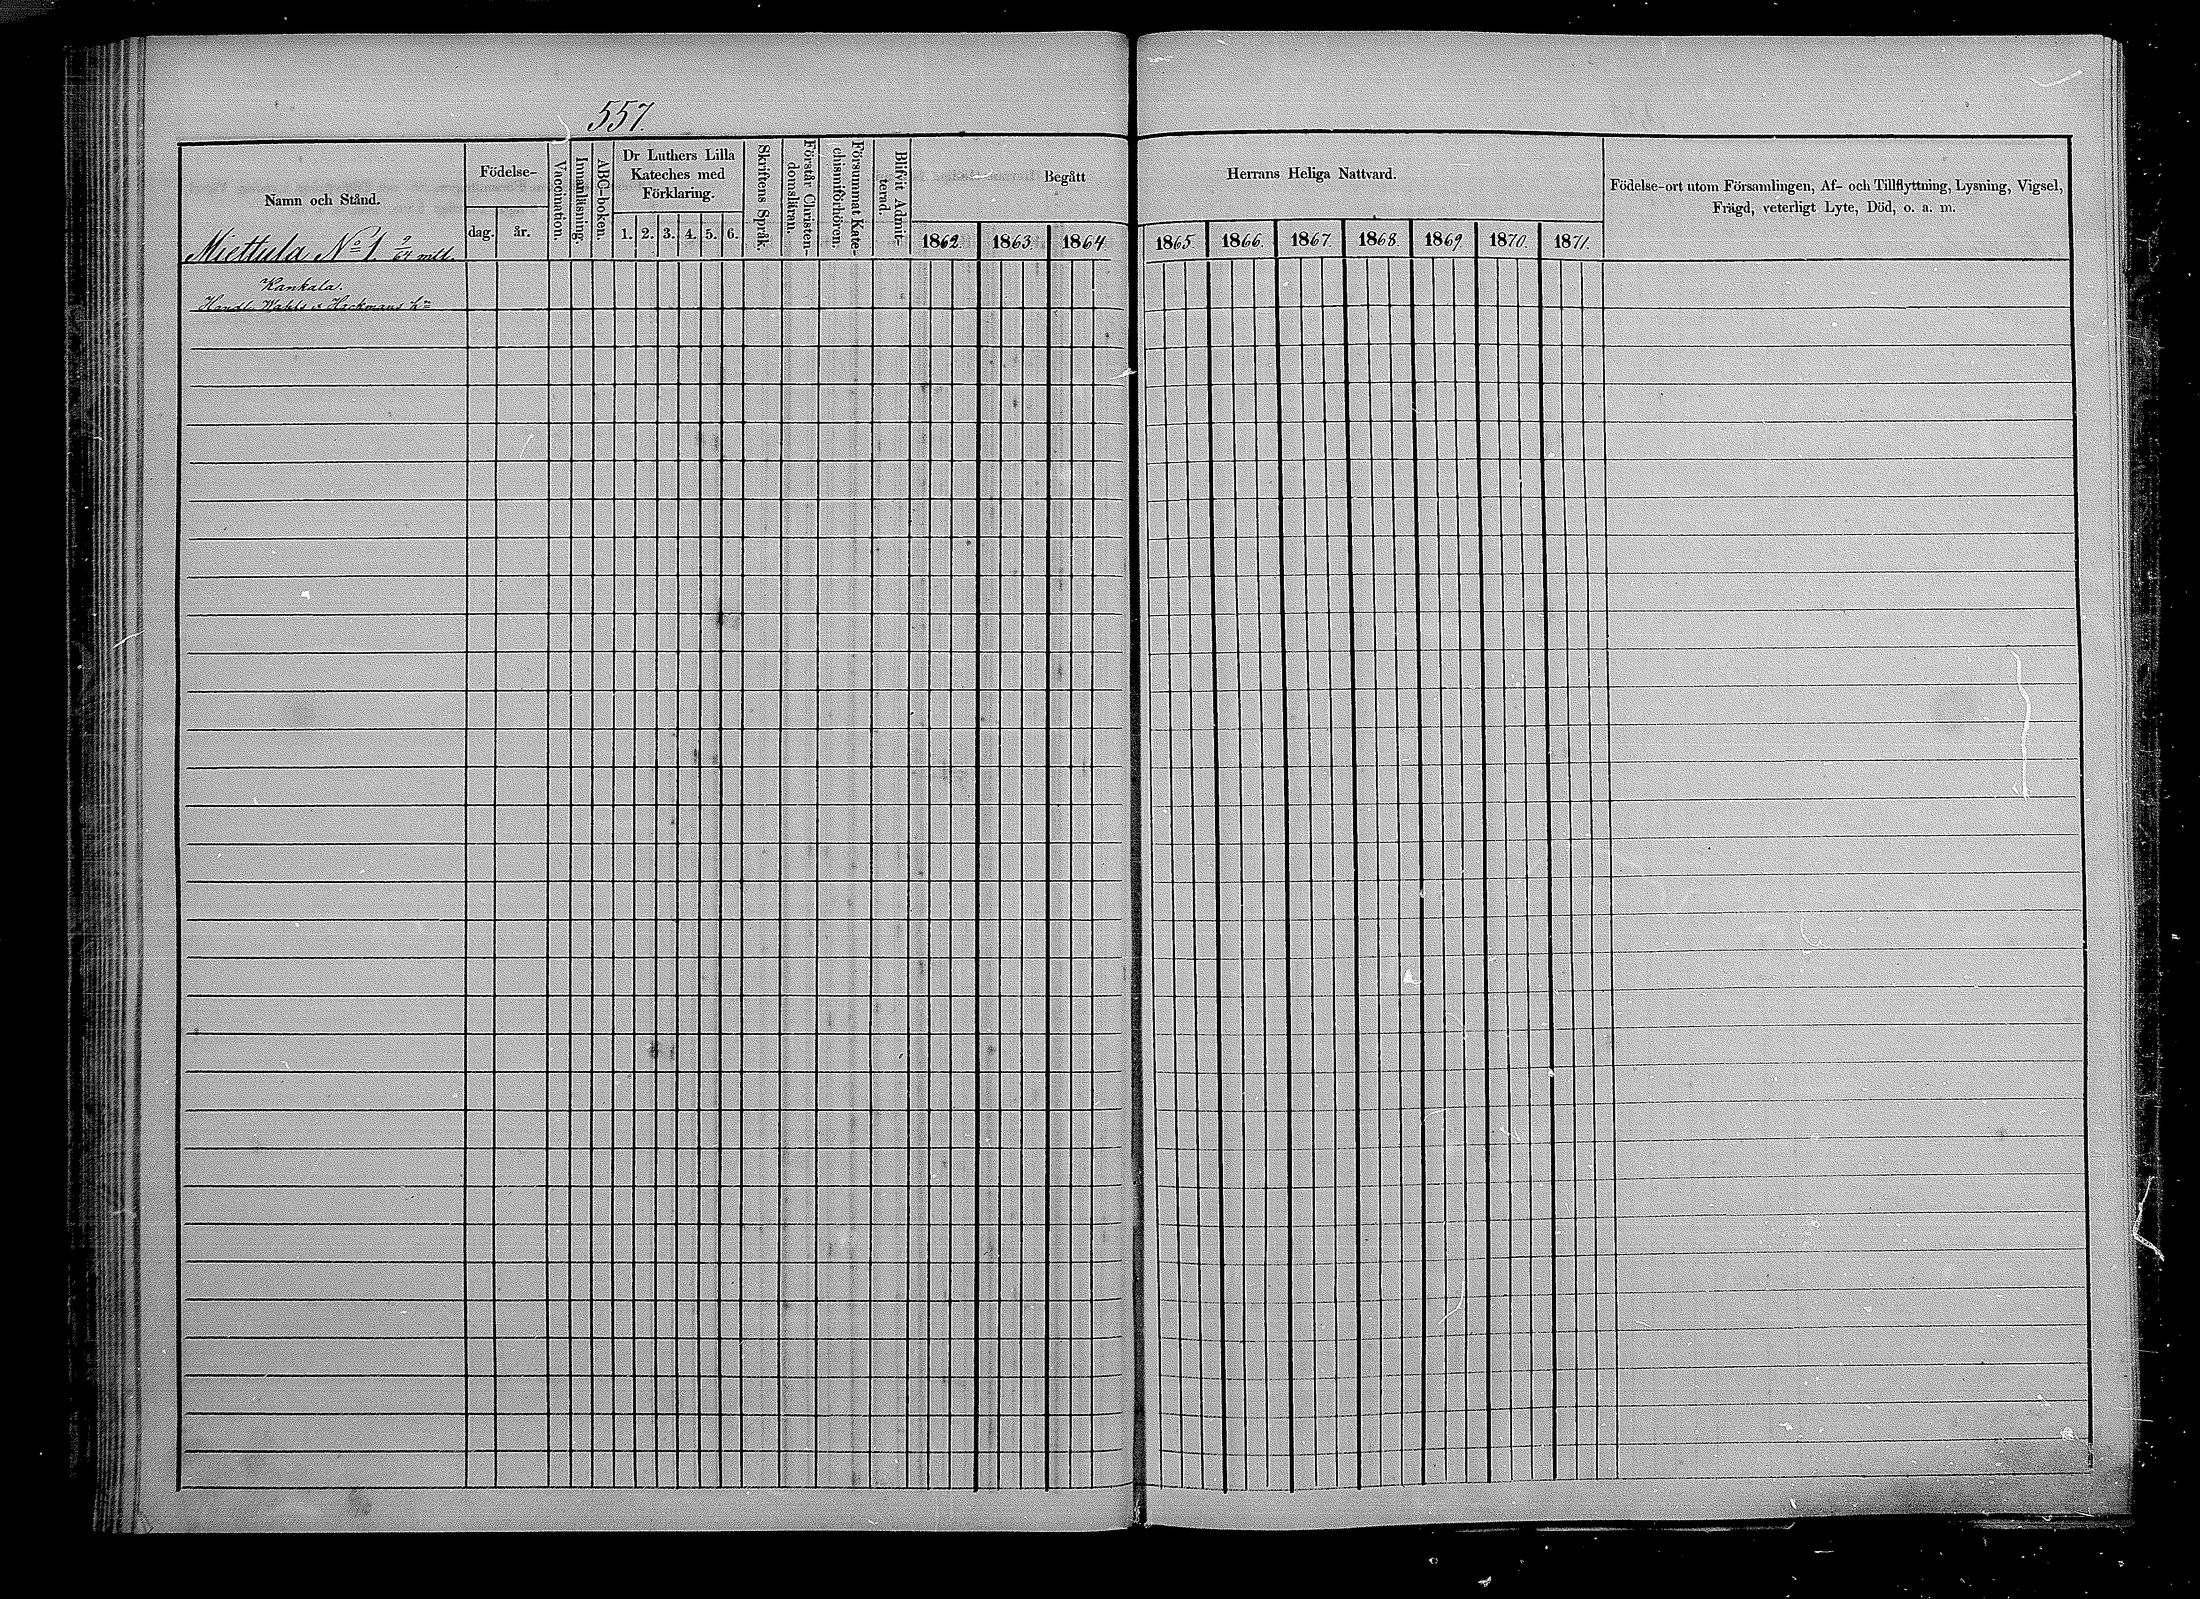 557.
Namn och Stånd.
Födelse-
dag.
år.
Vaccination.
Innanläsning.
ABC-boken.
Dr Luthers Lilla
Kateches med
Förklaring.
1. 2. 3. 4. 5. 6.
Skriftens Språk.
Förstår Christen-
domsläran.
Försummat Kate-
chismiförhören.
Blifvit Admit-
terad.
Begått
Herrans Heliga Nattvard.
1862. 1863. 1864.
1865. 1866. 1867. 1868. 1869. 1870. 1871.
Födelse-ort utom Församlingen, Af- och Tillflyttning, Lysning, Vigsel,
Frägd, veterligt Lyte, Död, o. a. m.
Miettula No 1 9/64 mtl.
Kankala.
Handl. Wahls & Hackmans